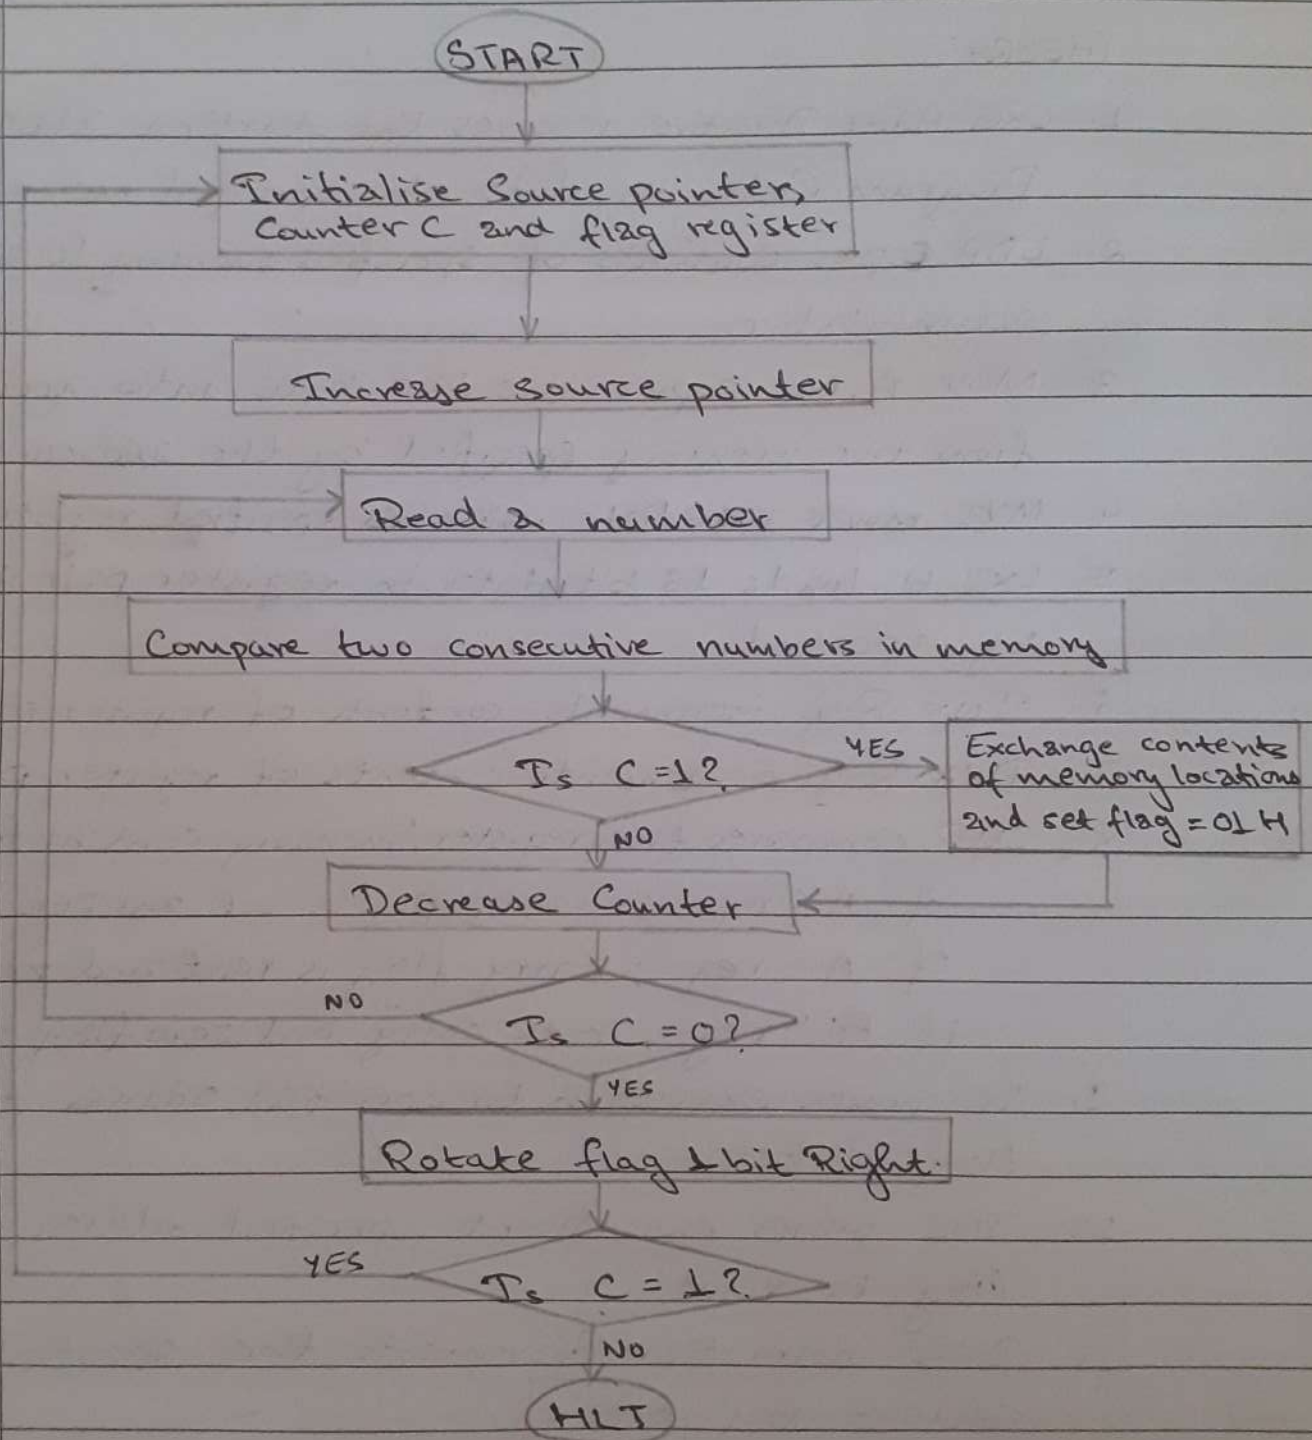 START
Initialise Source pointers,
Counter C and flag register
Increase source pointer
Read a number
Compare two consecutive numbers in memory
Is C=1?
YES
Exchange contents
of memory locations
and set flag = 01 H
NO
Decrease Counter
NO
Is C = 0?
YES
Rotate flag 1 bit Right.
YES
Is C = 1?
NO
HLT